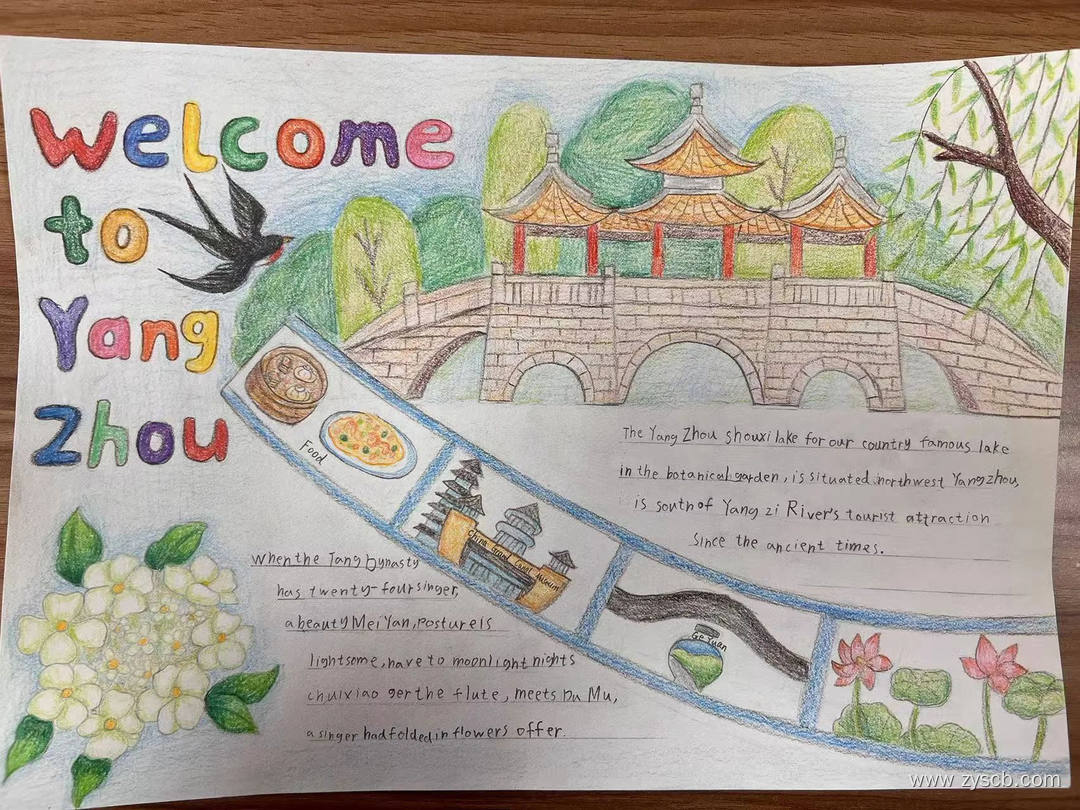 Welcome
to
Yang
Zhou
Food
China Grand Canal Museum
Ge Yuan
The Yang Zhou shouxi lake for our country famous lake
in the botanical garden, is situated northwest Yangzhou,
is south of Yang zi River's tourist attraction
Since the ancient times.
When the Tang Dynasty
has twenty-four singer,
a beauty Mei Yan, Posture Is
lightsome, have to moonlight nights
chuixiao ger the flute, meets Du Mu,
a singer had folded in flowers offer.
www.zyscb.com